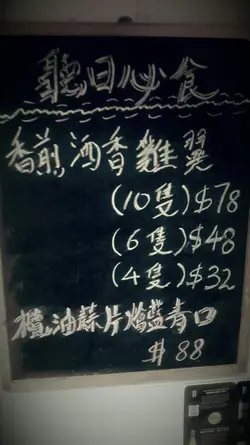 聽日必食
香煎酒香雞翼
(10隻)$78
(6隻)$48
(4隻)$32
欖油蒜片焗藍青口
$88